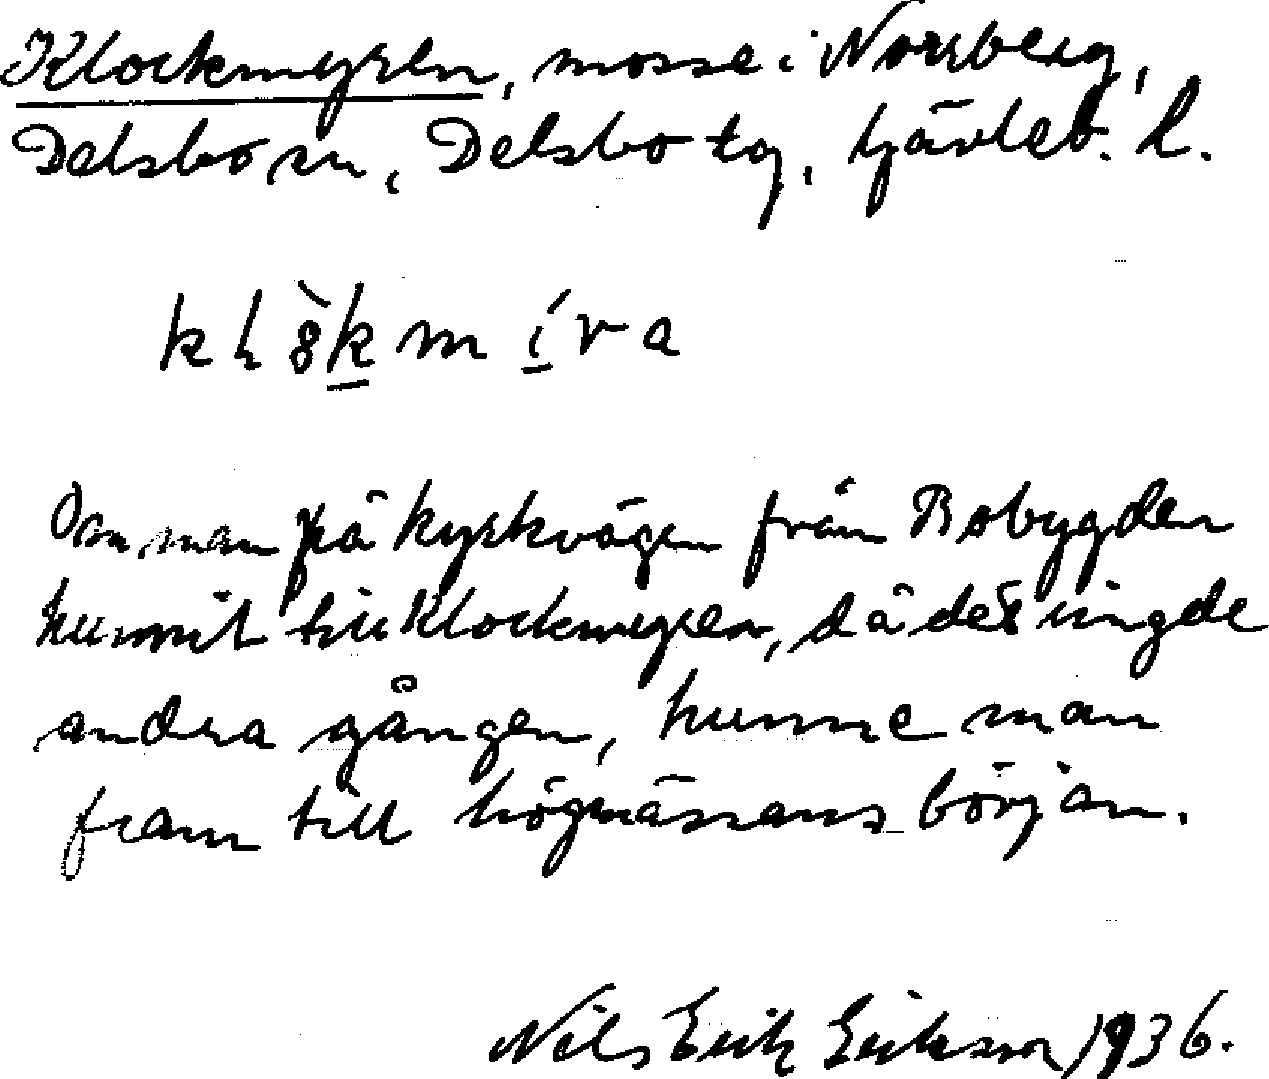 Klockmyren, mosse i Norrberg,
Delsbo sn, Delsbo tg, Gävleb. l.
Om man på kyrkvägen från Bobygden
hunnit till Klockmyren, då det ringde
andra gången, hunne man
fram till högmässans början.
Nils Erik Eriksson 1936.